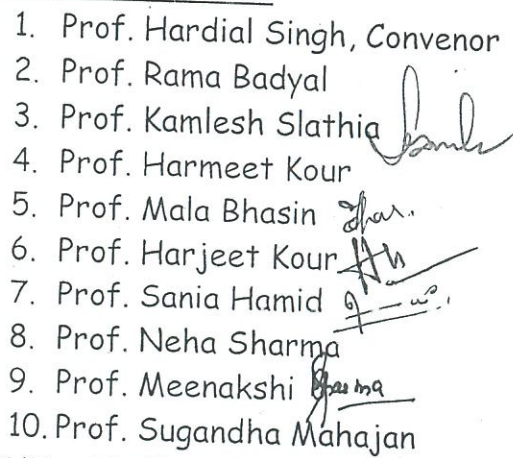 1. Prof. Hardial Singh, Convenor
2. Prof. Rama Badyal
3. Prof. Kamlesh Slathia
4. Prof. Harmeet Kour
5. Prof. Mala Bhasin
6. Prof. Harjeet Kour
7. Prof. Sania Hamid
8. Prof. Neha Sharma
9. Prof. Meenakshi
10. Prof. Sugandha Mahajan